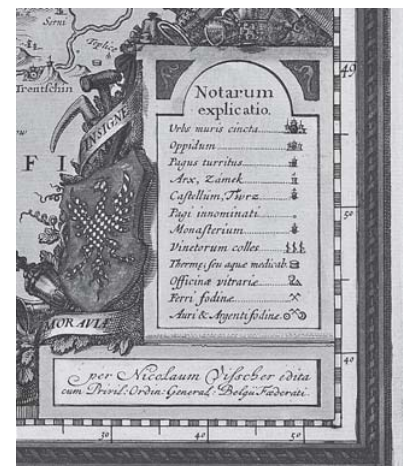 Serni
Teplice
Trentschin
49
INSIGNE
MORAVIÆ
F I
Notarum
explicatio.
Urbs muris cincta
Oppidum
Pagus turritus
Arx, Zámek
Castellum, Twrz
Pagi innominati
Monasterium
Vinetorum colles
Thermę, seu aquæ medicab.
Officinæ vitrariæ
Ferri fodinæ
Auri & Argenti fodinæ
50
40
per Nicolaum Visscher edita
cum Privil: Ordin: General: Belgii Fæderati.
30 40 50